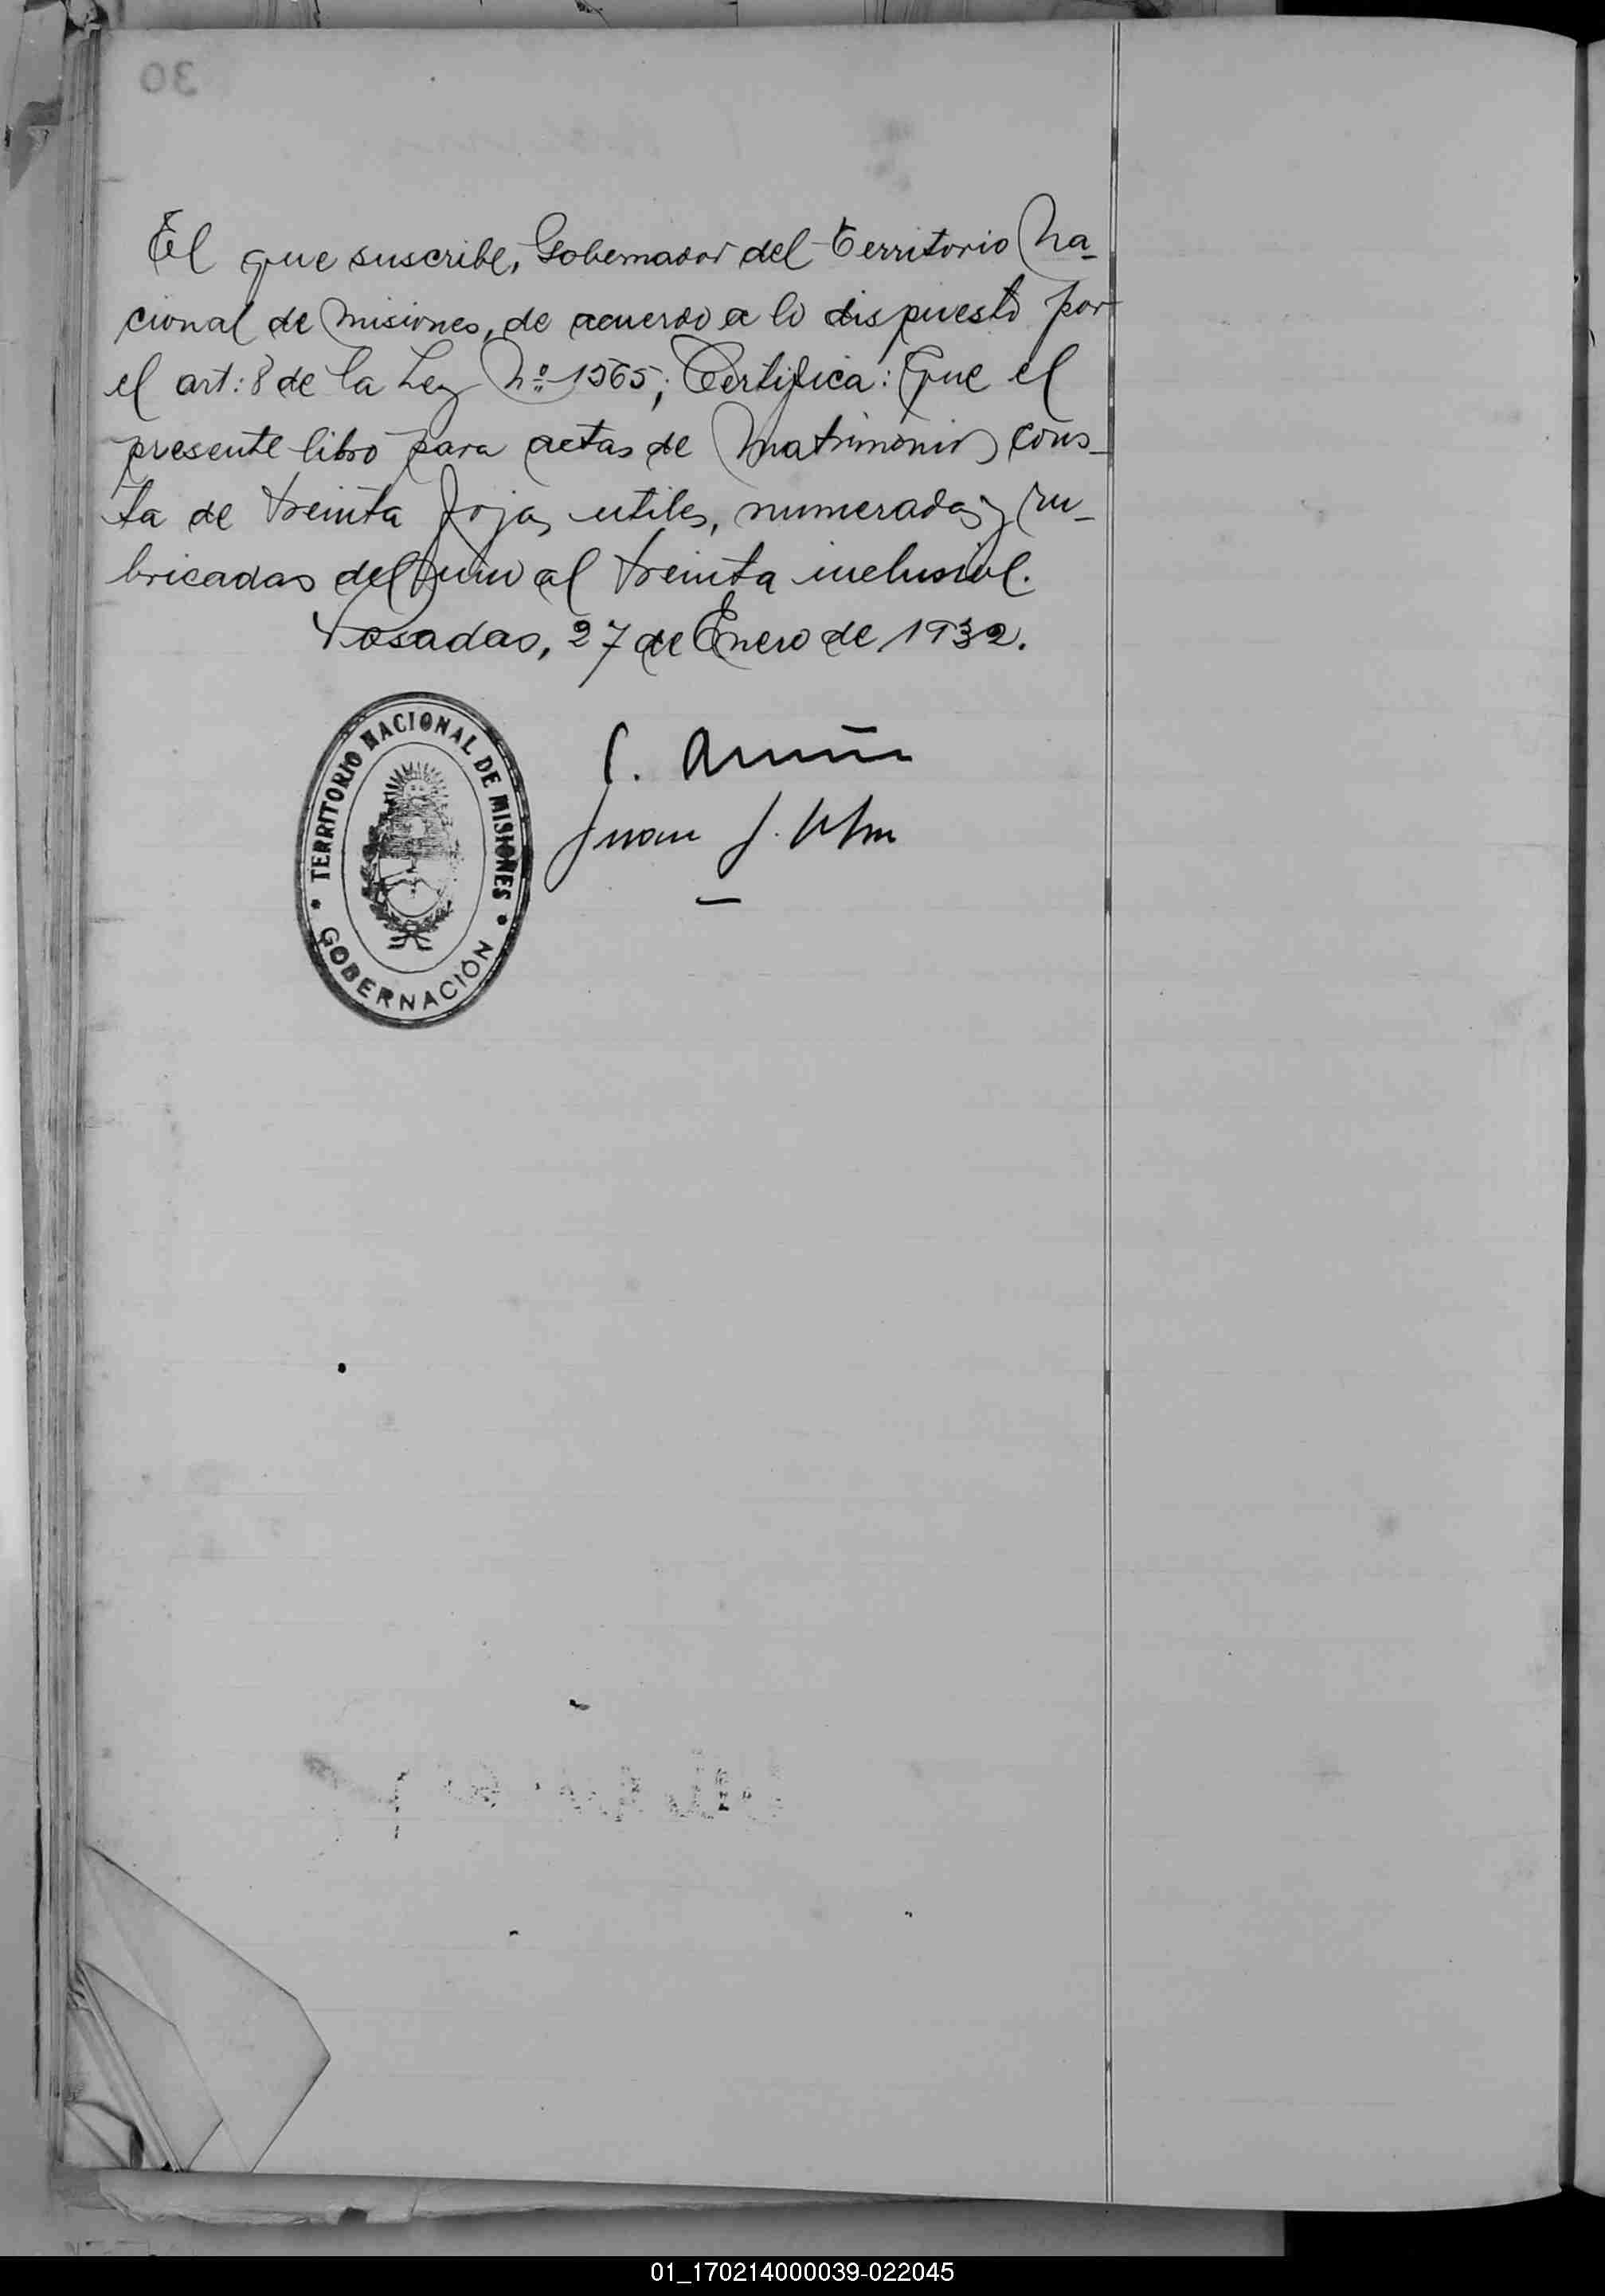 30
El que suscribe, Gobernador del Territorio Na-
cional de Misiones, de acuerdo a lo dispuesto por
el art: 8 de la Ley Nº 1565; Certifica: Que el
presente libro para actas de Matrimonios cons-
ta de treinta fojas utiles, numeradas y ru-
bricadas del uno al treinta inclusive.
Posadas, 27 de Enero de 1932.
TERRITORIO NACIONAL DE MISIONES
GOBERNACIÓN
C.
Juan J.
01_170214000039-022045